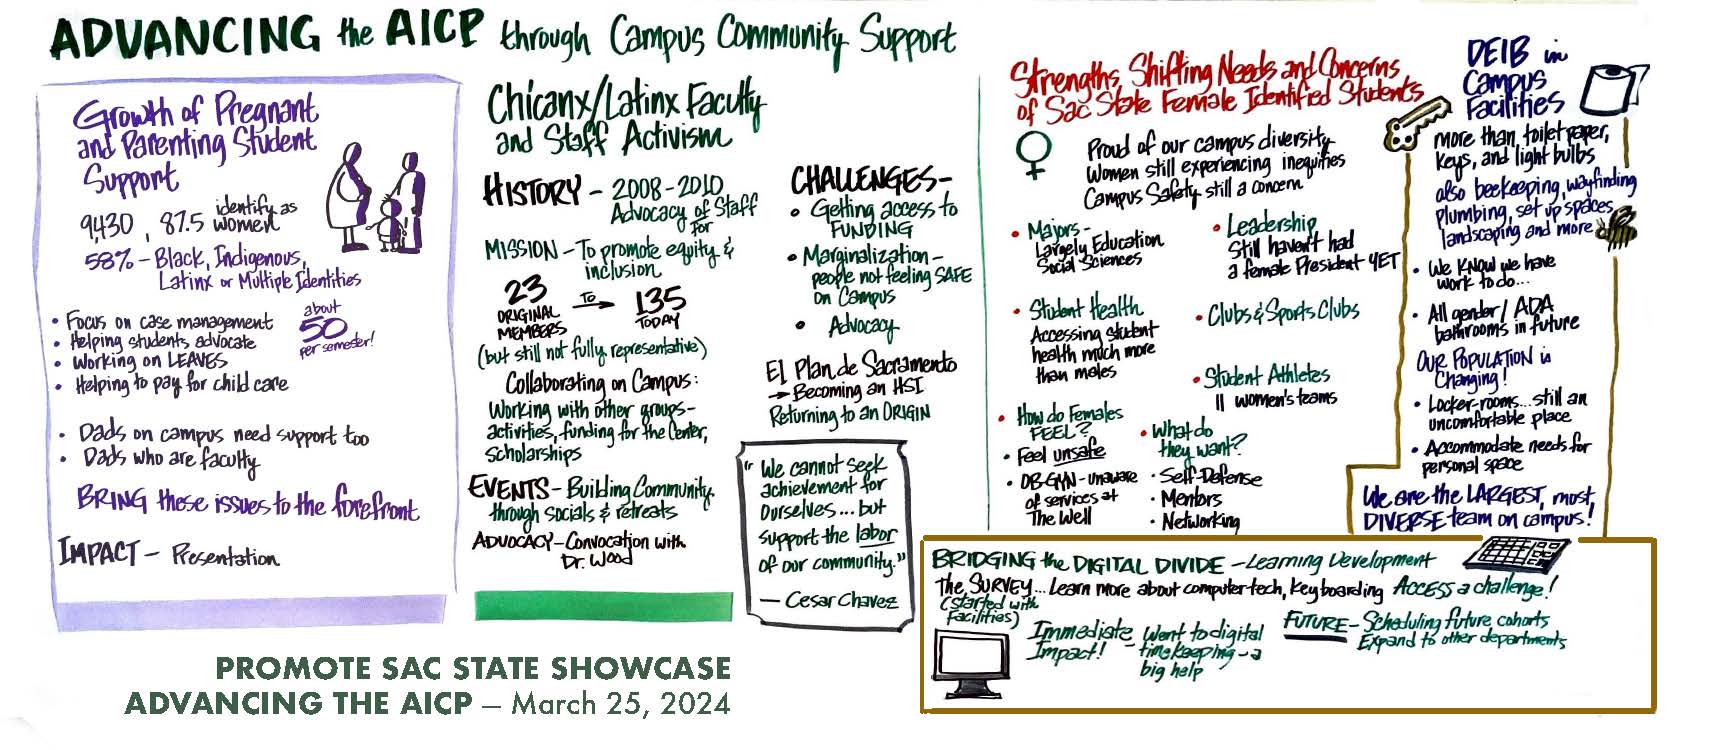 ADVANCING the AICP through Campus Community Support
Growth of Pregnant
and Parenting Student
Support
9,430, 87.5 identify as
women
58% - Black, Indigenous,
Latinx or Multiple Identities
• Focus on case management
• Helping students advocate
• Working on LEAVES
• Helping to pay for child care
about
50
per semester!
• Dads on campus need support too
• Dads who are faculty
BRING these issues to the forefront
IMPACT - Presentation
Chicanx/Latinx Faculty
and Staff Activism
HISTORY - 2008-2010
Advocacy of Staff
For
MISSION - To promote equity &
inclusion
23 TO → 135
ORIGINAL
MEMBERS
TODAY
(but still not fully representative)
Collaborating on Campus:
Working with other groups-
activities, funding for the Center,
scholarships
EVENTS - Building Community
through socials & retreats
ADVOCACY - Convocation with
Dr. Wood
CHALLENGES -
• Getting access to
FUNDING
• Marginalization -
people not feeling SAFE
on Campus
• Advocacy
El Plan de Sacramento
→ Becoming an HSI
Returning to an ORIGIN
"We cannot seek
achievement for
ourselves... but
support the labor
of our community."
— Cesar Chavez
Strengths, Shifting Needs and Concerns
of Sac State Female Identified Students
Proud of our campus diversity
Women still experiencing inequities
Campus Safety still a concern
• Majors -
Largely Education
Social Sciences
• Student Health
Accessing student
health much more
than males
• How do Females
FEEL?
• Feel unsafe
• OBGYN - unaware
of services at
The Well
• Leadership
Still haven't had
a female President YET
• Clubs & Sports Clubs
• Student Athletes
11 women's teams
• What do
they want?
• Self-Defense
• Mentors
• Networking
DEIB in
Campus
Facilities
more than toilet paper,
keys, and light bulbs
also beekeeping, wayfinding
plumbing, set up spaces,
landscaping and more
• We KNOW we have
work to do...
• All gender/ADA
bathrooms in future
OUR POPULATION is
Changing!
• Locker-rooms... still an
uncomfortable place
• Accommodate needs for
personal space
We are the LARGEST, most
DIVERSE team on campus!
BRIDGING the DIGITAL DIVIDE - Learning Development
The SURVEY... Learn more about computer tech, keyboarding Access a challenge!
(started with
Facilities)
Immediate
Impact!
- Went to digital
timekeeping - a
big help
FUTURE - Scheduling future cohorts
Expand to other departments
PROMOTE SAC STATE SHOWCASE
ADVANCING THE AICP — March 25, 2024